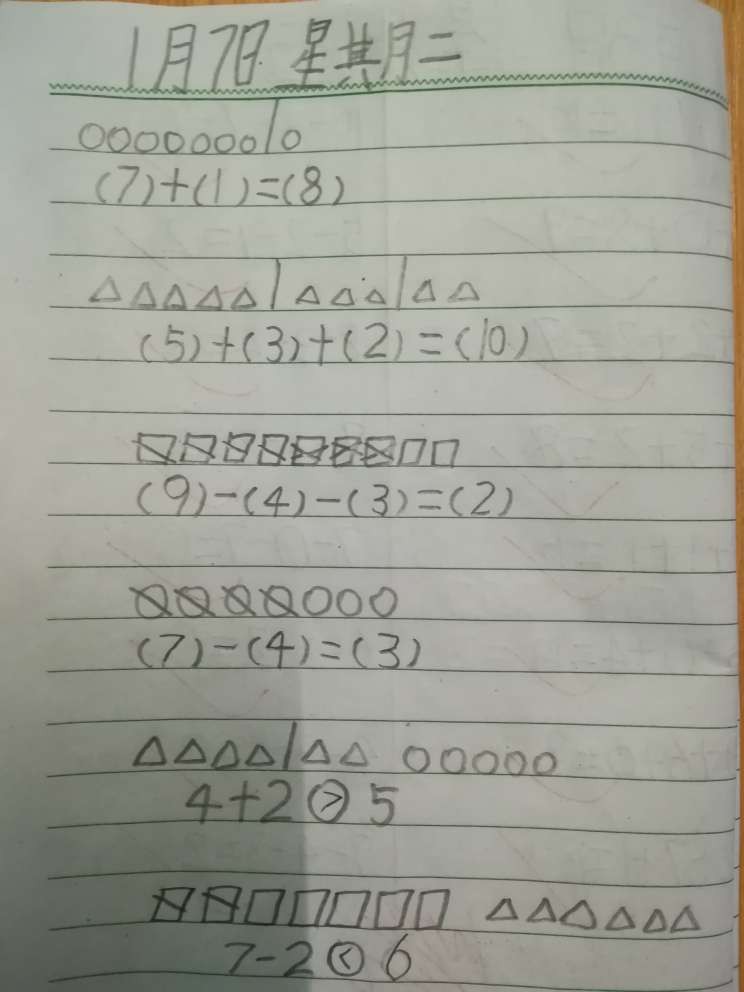 1月7日 星期二
(7)+(1)=(8)
(5)+(3)+(2)=(10)
(9)-(4)-(3)=(2)
(7)-(4)=(3)
4+2>5
7-2<6